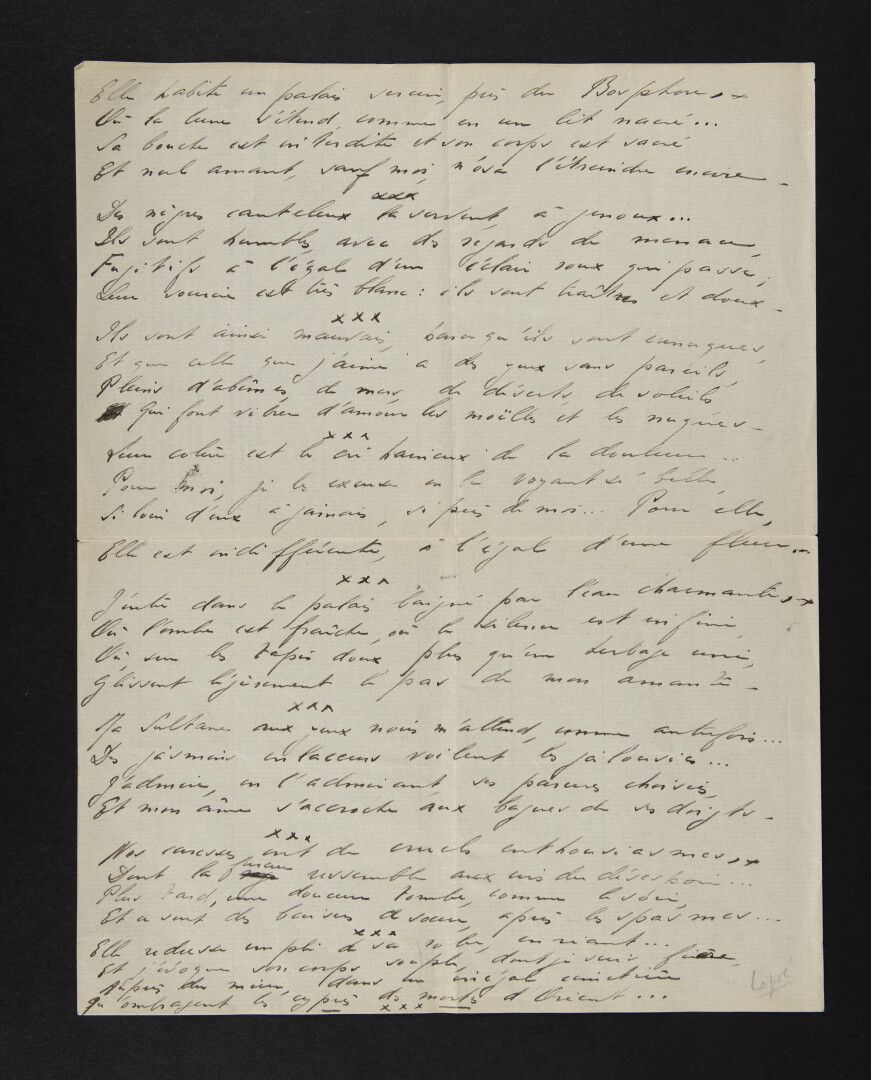 Elle habite un palais serein, près du Bosphore,
Où la lune s'étend comme en un lit nacré...
Sa bouche est interdite et son corps est sacré
Et nul amant, sauf moi, n'osa l'étreindre encore.
xxx
Des nègres cauteleux la servent à genoux...
Ils sont humbles, avec des regards de menace,
Fugitifs à l'égal d'un éclair roux qui passe,
Leur sourire est très blanc : ils sont traîtres et doux.
xxx
Ils sont ainsi mauvais, parce qu'ils sont eunuques,
Et que celle que j'aime a des yeux sans pareils,
Pleins d'abîmes, de mers, de déserts, de soleils
Qui font vibrer d'amour les moëlles et les nuques.
xxx
Leur colère est le cri haineux de la douleur...
Pour moi, je les excuse en la voyant si belle,
Si loin d'eux à jamais, si près de moi... Pour elle,
Elle est indifférente, à l'égal d'une fleur...
xxx
J'entre dans le palais baigné par l'eau charmante,
Où l'ombre est fraîche, où le silence est infini,
Où, sur les tapis doux plus qu'un herbage uni,
Glissent légèrement les pas de mon amante.
xxx
Ma Sultane aux yeux noirs m'attend, comme autrefois...
Des jasmins enlaceurs voilent les jalousies...
J'admire, en l'admirant, ses parures choisies,
Et mon âme s'accroche aux bagues de ses doigts.
xxx
Nos caresses ont de cruels enthousiasmes,
Dont la fureur ressemble aux cris du désespoir...
Plus tard, une douceur tombe, comme le soir,
Et ce sont des baisers de sœur, après les spasmes...
xxx
Elle redresse un pli de sa robe, en riant...
Et j'évoque son corps souple, dont je suis fière,
Auprès du mien, dans un inégal cimetière
Qu'ombragent les cyprès des morts d'Orient...
xxx